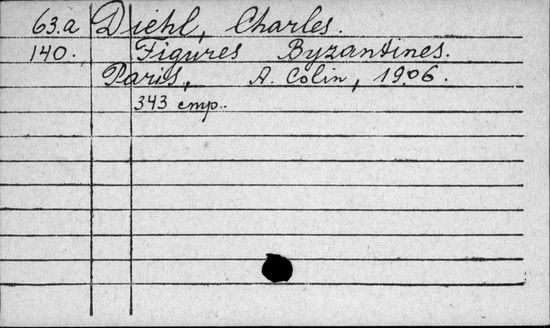 63.a Diehl, Charles.
140. Figures Byzantines.
Paris, A. Colin, 1906.
343 стр.